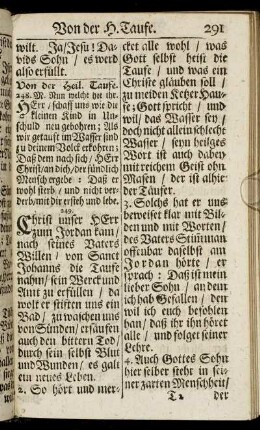 Von der H. Taufe. 291
wilt. Ja/Jesu! Da-
vids Sohn / es werd
also erfüllt.
Von der Heil. Taufe.
248. M. Nun welche hie ihr.
HErr / schaff uns wie die
kleinen Kind in Un-
schuld neu gebohren; Als
wir getauft im Wasser sind
zu deinem Volck erkohren;
Daß dem nach sich / HErr
Christ/an dich/der sündlich
Mensch ergebe: Daß er
wohl sterb / und nicht ver-
derb/mit dir ersteh und lebe.
249.
Christ unser HErr
zum Jordan kam/
nach seines Vaters
Willen / von Sanct
Johanns die Taufe
nahm/ sein Werck und
Amt zu erfüllen / da
wolt er stiften uns ein
Bad / zu waschen uns
von Sünden/ ersäufen
auch den bittern Tod/
durch sein selbst Blut
und Wunden/ es galt
ein neues Leben.
2. So hört und mer-
cket alle wohl / was
Gott selbst heist die
Taufe / und was ein
Christe gläuben soll /
zu meiden Ketzer Hau-
fe: Gott spricht / und
will / das Wasser sey /
doch nicht allein schlecht
Wasser / seyn heilges
Wort ist auch dabey
mit reichem Geist ohn
Masen / der ist alhier
der Täufer.
3. Solchs hat er uns
beweiset klar mit Bil-
den und mit Worten/
des Vaters Stim man
offenbar daselbst am
Jordan hörte / er
sprach: Daß ist mein
lieber Sohn / an dem
ich hab Gefallen / den
will ich euch befohlen
han/ daß ihr ihn höret
alle / und folget seiner
Lehre.
4. Auch Gottes Sohn
hier selber steht in sei-
ner zarten Menschheit/
T 2 der